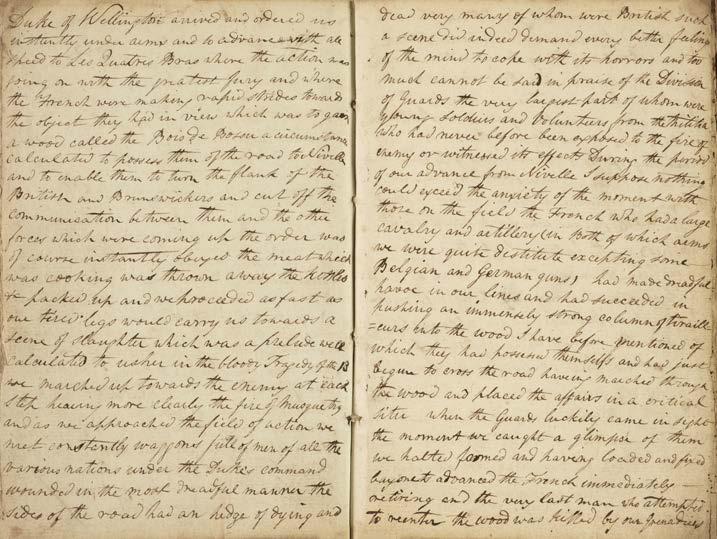 Duke of Wellington arrived and ordered us
instantly under arms and to advance with all
speed to Les Quatres Bras where the action was
going on with the greatest fury and where
the French were making rapid strides towards
the object they had in view which was to gain
a wood called the Bois de Bossu a circumstance
calculated to possess them of the road to Nivelle
and to enable them to turn the flank of the
British and Brunswickers and cut off the
communication between them and the other
forces which were coming up the order was
of course instantly obeyed the meat which
was cooking was thrown away the kettles
&c packed up and we proceeded as fast as
our tired legs would carry us towards a
scene of slaughter which was a prelude well
calculated to usher in the bloody Tragedy of the 18
we marched up towards the enemy at each
step hearing more clearly the fire of Musquetry
and as we approached the field of action we
met constantly waggons full of men of all the
various nations under the Dukes command
wounded in the most dreadful manner the
sides of the road had an hedge of dying and
dead very many of whom were British such
a scene did indeed demand every better feeling
of the mind to cope with its horrors and too
much cannot be said in praise of the Division
of Guards the very largest part of whom were
young soldiers and Volunteers from the Militia
who had never before been exposed to the fire of
enemy or witnessed its effects During the period
of our advance from Nivelle I suppose nothing
could exceed the anxiety of the moment with
those on the field the French who had a large
cavalry and artillery (in Both of which arms
we were quite destitute excepting some
Belgian and German guns) had made dreadful
havoc in our lines and had succeeded in
pushing an immensely strong column of tiraille
=eurs into the wood I have before mentioned of
which they had possessed themselfs and had just
begun to cross the road having marched through
the wood and placed the affairs in a critical
site when the Guards luckily came in sight
the moment we caught a glimpse of them
we halted formed and having loaded and fixed
bayonets advanced the French immediately
retiring and the very last man who attempted
to reenter the wood was killed by our Grenadiers